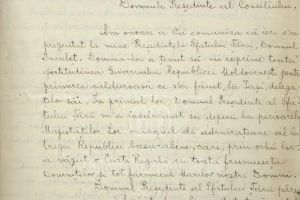 Domnule Preşedinte al Consiliului,
Am onoare a Vă comunica că ieri s'a
prezintat la mine Preşedintele Sfatului Ţării, Domnul
Inculet. Domnia-lui a ţinut să-mi exprime toată
gratitudinea Guvernului Republicei Moldoveneşti pentru
primirea călduroasă ce s'a făcut la Iaşi, delega-
ţilor săi. În primul loc, Domnul Preşedinte al Sfa-
tului Ţării m'a însărcinat să depun la picioarele
Majestăţilor Lor, omagiul de admiraţiune al în-
tregei Republici basarabene, care, prin ochii lor
a văzut o Curte Regală cu toată frumuseţa
Domniţelor şi tot farmecul Marilor noştri Domni.
Domnul Preşedinte al Sfatului Ţării